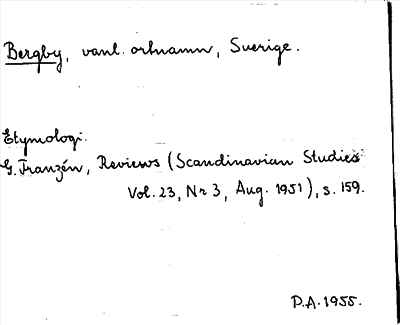 Bergby, vanl. ortnamn, Sverige.
Etymologi.
G. Franzén, Reviews (Scandinavian Studies
Vol. 23, Nr 3, Aug. 1951), s. 159.
P.A. 1955.